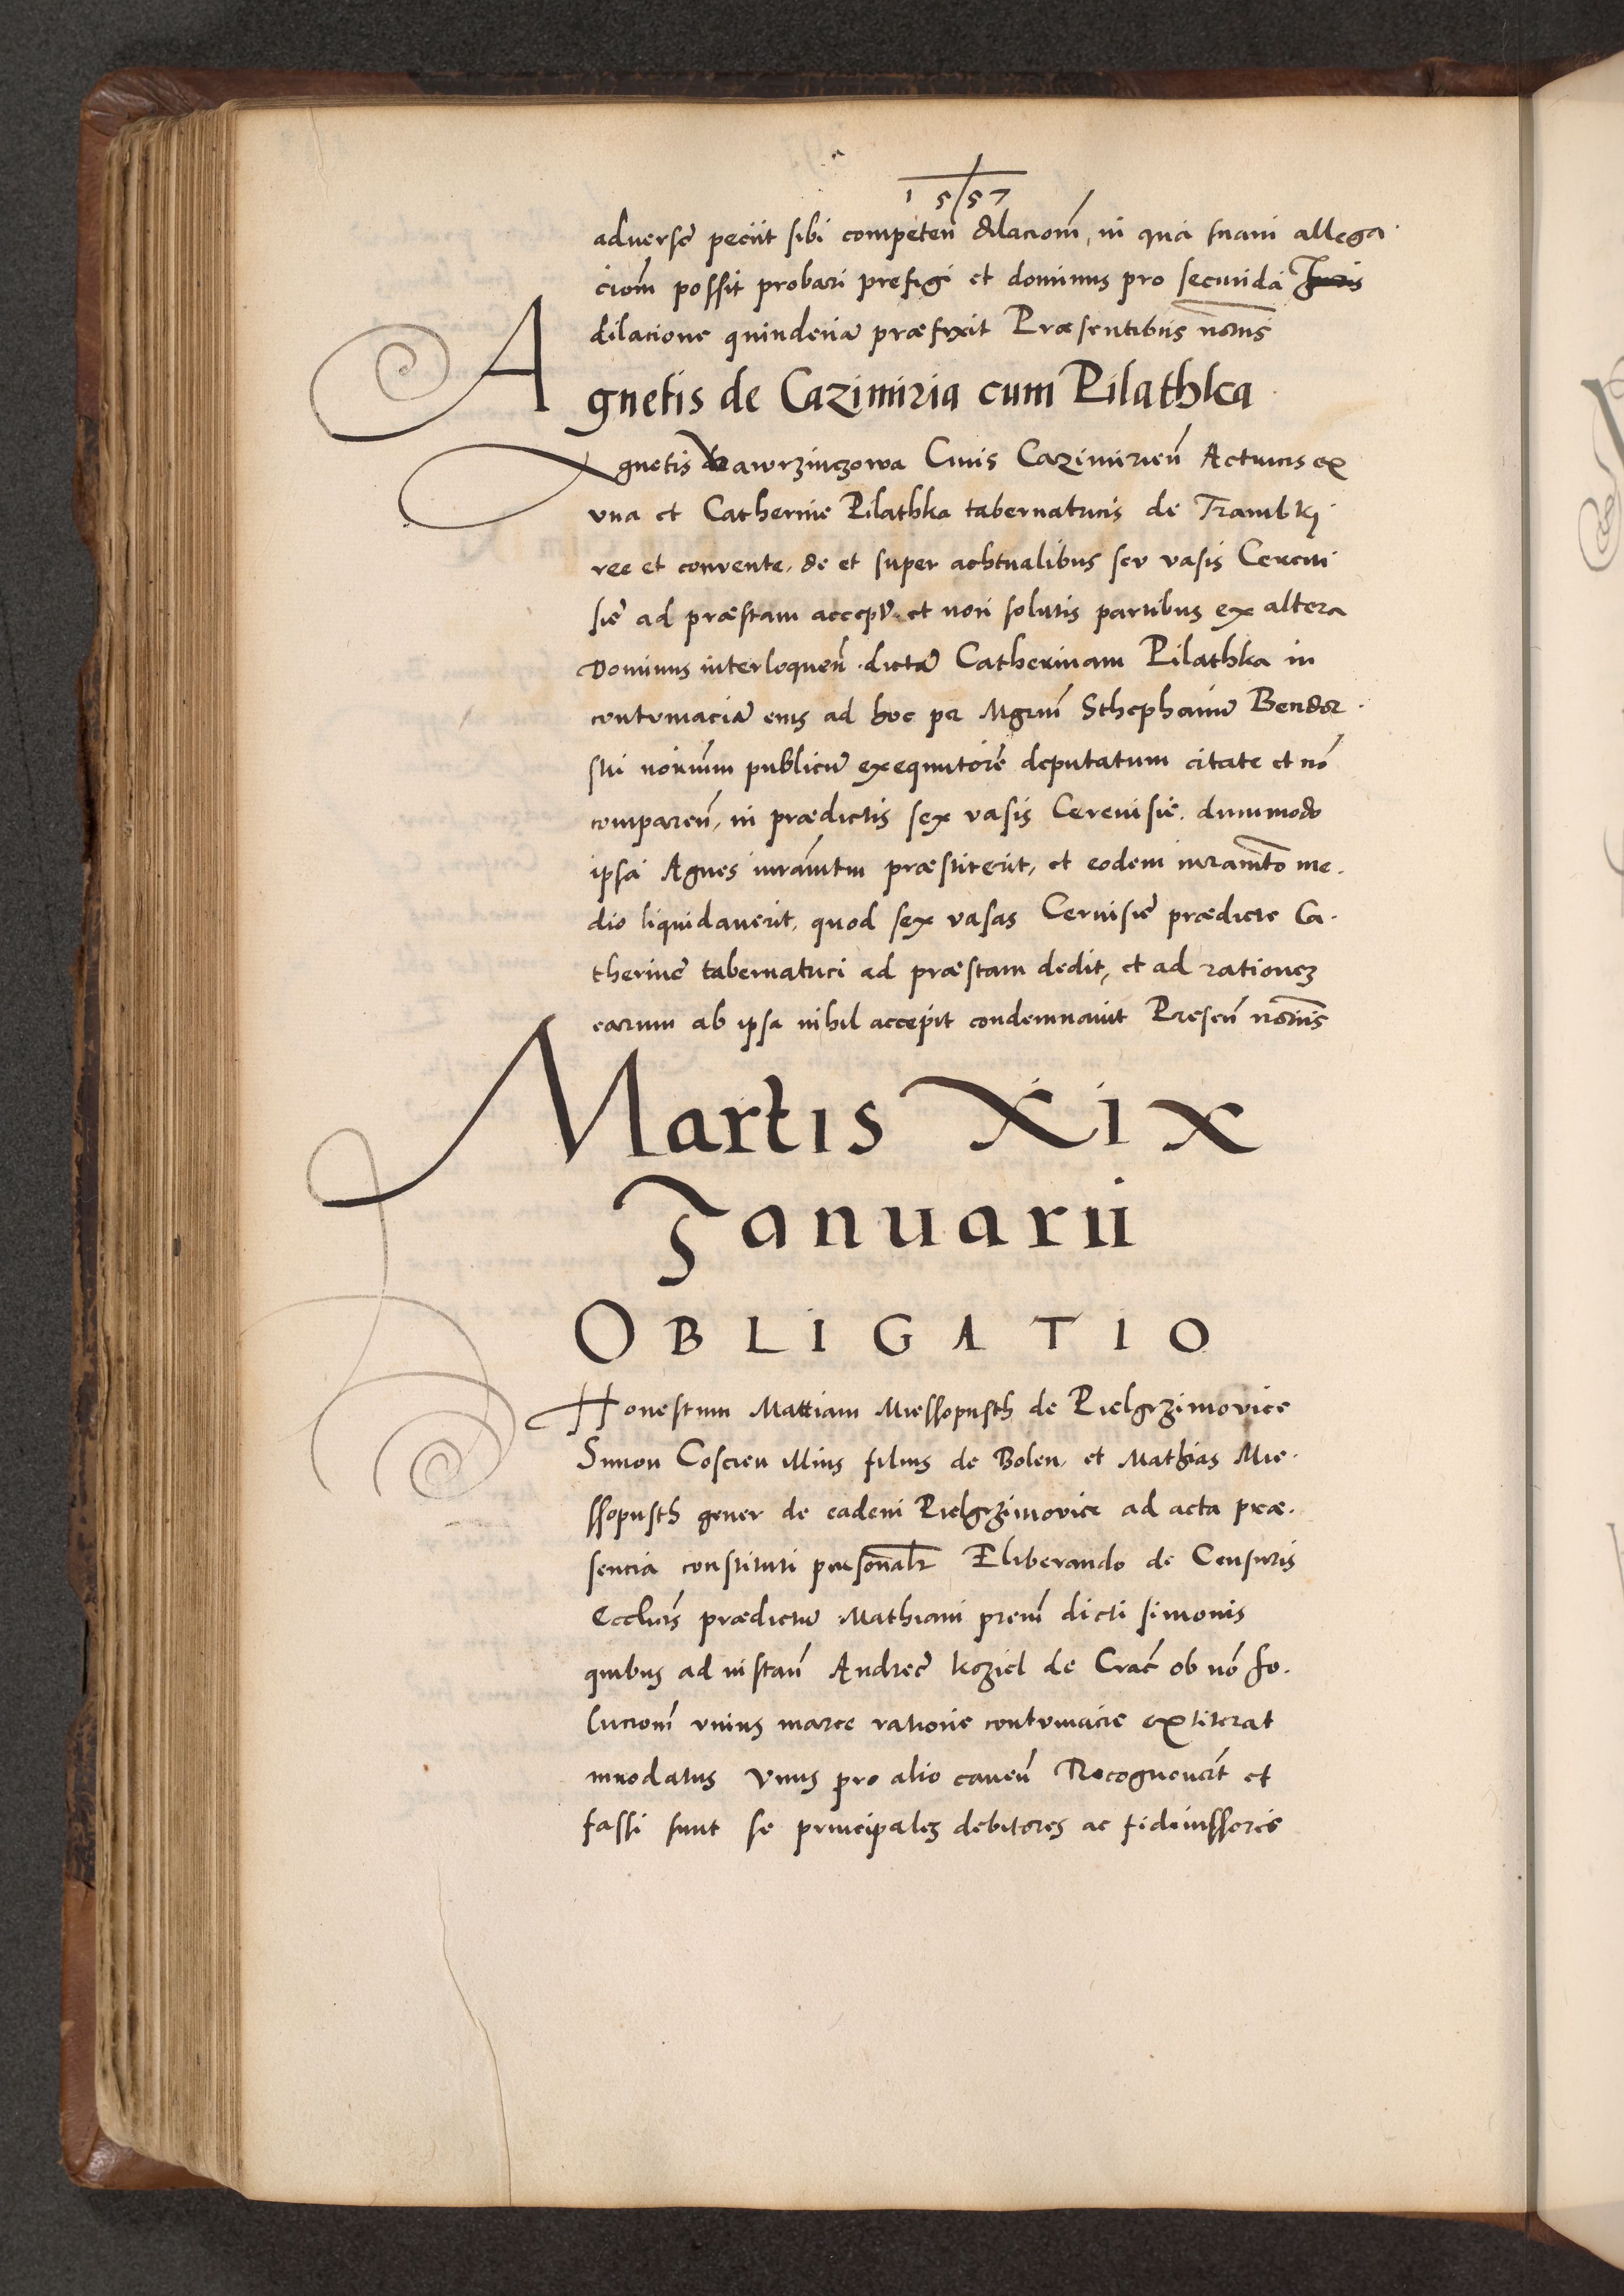 1557
adverse peciit sibi competen dilaciom, in qua suam allega
ciom possit probari prefigi et dominus pro secunda Juris
dilacione quindena præfixit Præsentibus notariis
Agnetis de Cazimiria cum Pilathka
Agnetis Wawrzinczowa Civis Cazimirien Actricis ex
vna et Catherine Pilathka tabernatricis de Trambki
ree et convente, de et super achtualibus seu vasis Cerevi
sie ad præstam accept. et non solutis partibus ex altera
Dominus interloquen dictam Catherinam Pilathka in
contumaciam eius ad hoc per Mgrm Sthephanum Bendor
ski norium publicum exequutorem deputatum citate et no
comparen, in prædictis sex vasis Cerevisie. dummodo
ipsa Agnes iuramtm præstiterit, et eodem iuramto me
dio liquidaverit, quod sex vasas Cervisie prædicte Ca
therine tabernatrici ad præstam dedit, et ad rationez
earum ab ipsa nihil accepit condemnavit Presen notariis
Martis XIX
Januarii
OBLIGATIO
Honestum Mattiam Miessopusth de Pielgrzimovice
Simon Coscien illius filius de Bolen, et Mathias Mie
ssopusth gener de eadem Pielgrzimovice ad acta præ
sencia constituti personalr Eliberando de Censuris
Ecclicis prædictum Mathiam prem dicti simonis
quibus ad instan Andree koziel de Crac ob no so
luciom vnius marce ratione contumacie extiterat
innodatus Vnus pro alio caven Recognovert et
fassi sunt se principalez debitores ac fideiussores